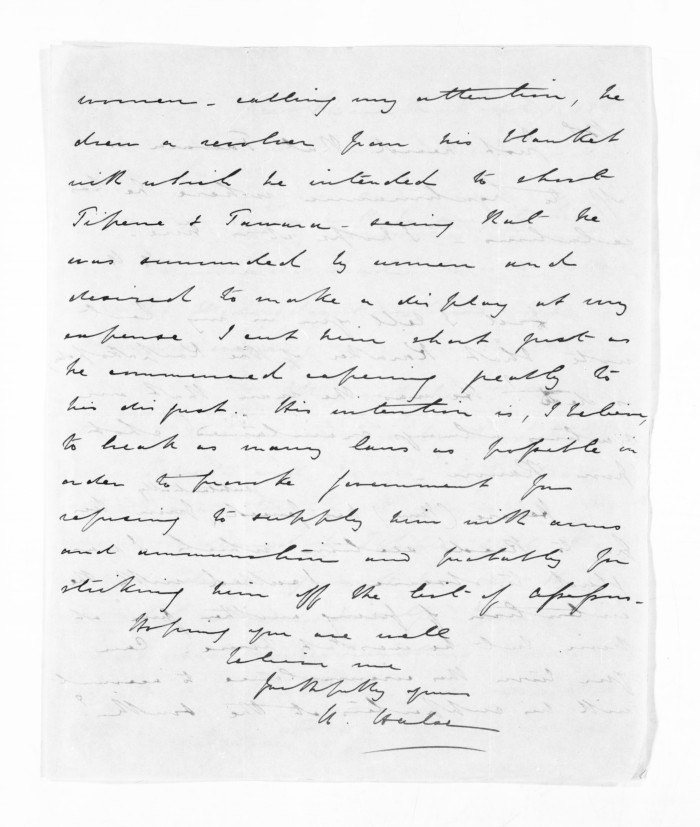 women - calling my attention, he
drew a revolver from his blanket
with which he intended to shoot
Tipene & Tamara - seeing that he
was surrounded by women and
desired to make a display at my
expense I cut him short just as
he commenced capering greatly to
his disgust. His intention is, I believe,
to break as many laws as possible in
order to provoke government for
refusing to supply him with arms
and ammunition and probably for
striking him off the list of Assessors -
Hoping you are well
Believe me
faithfully yours
H. Halse